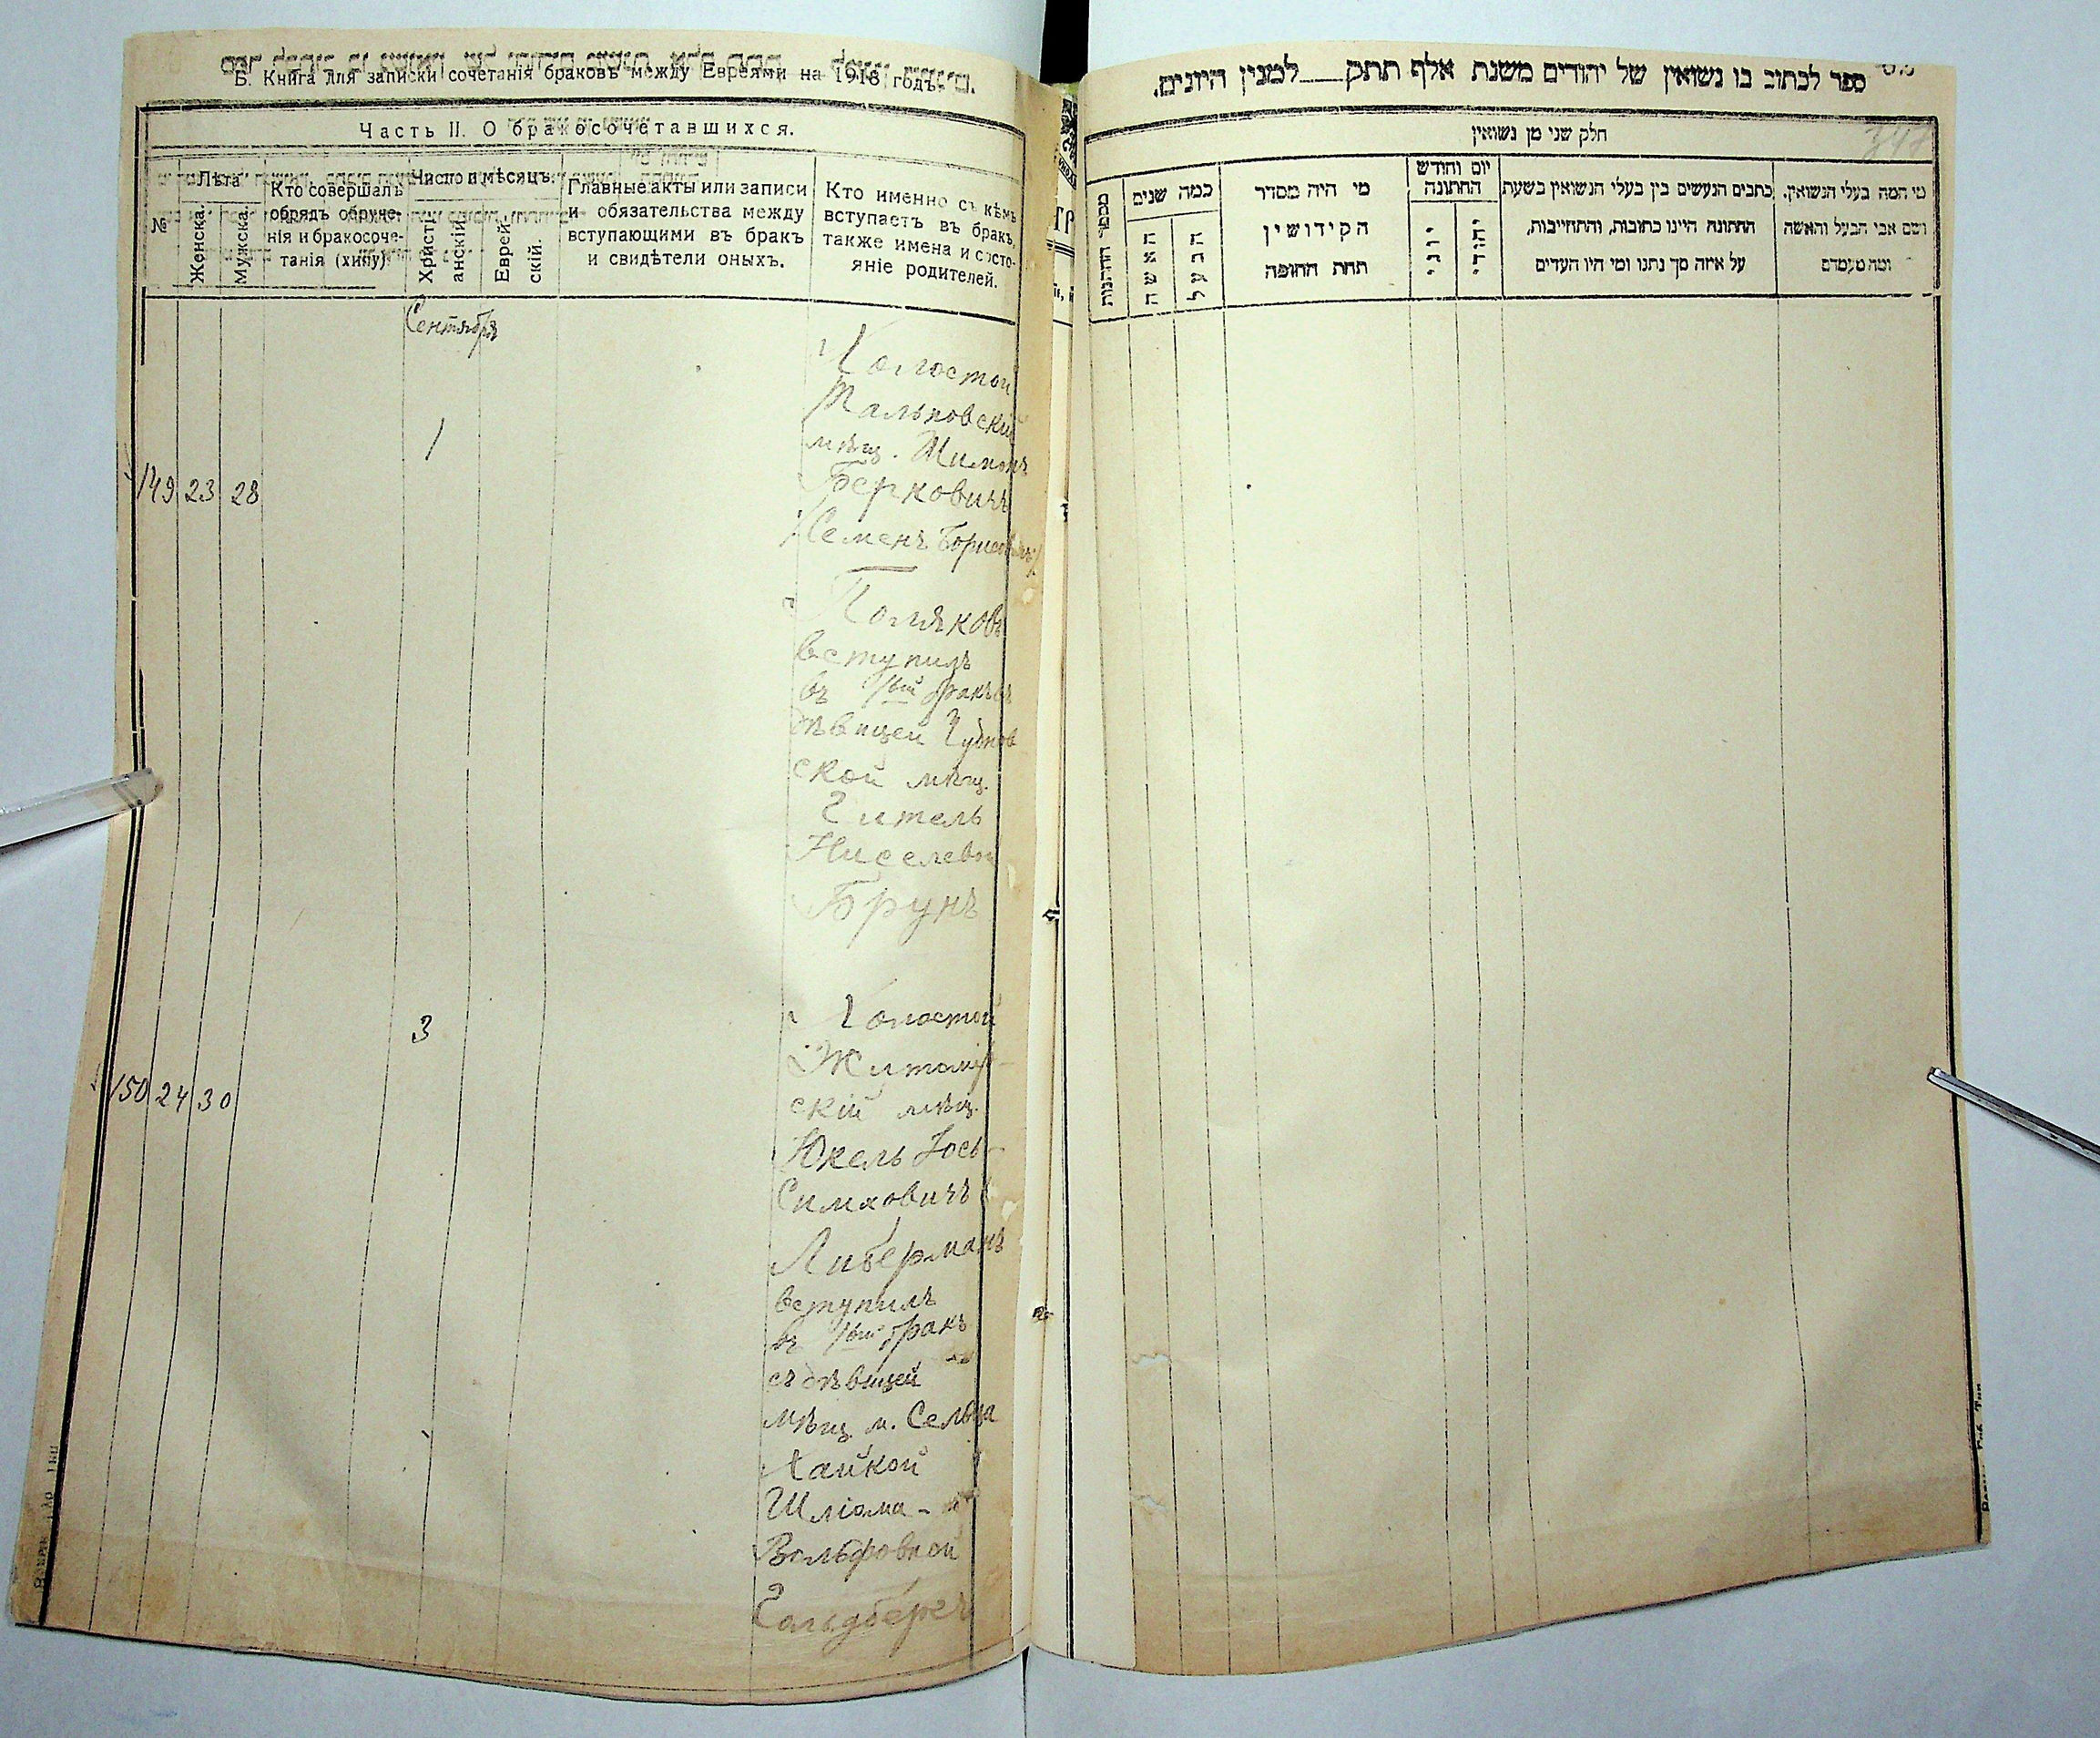 Б. Книга для записки сочетанія браковъ между Евреями на 1918 годъ.
Часть II. О бракосочетавшихся.
№
Лѣта
Женска.
Мужска.
Кто совершалъ
обрядъ обруче-
нія и бракосоче-
танія (хипу)
Число и мѣсяцъ.
Христі-
анскій.
Еврей-
скій.
Главные акты или записи
и обязательства между
вступающими въ бракъ
и свидѣтели оныхъ.
Кто именно съ кѣмъ
вступаетъ въ бракъ,
также имена и состо-
яніе родителей.
Сентября
149 23 28
1
Холостой
мѣщ. Шимонъ
Берковичъ
(Семенъ Борисовичъ)
Поляковъ
вступилъ
въ 1ый бракъ съ
дѣвицей Чуднов
ской мѣщ.
Гитель
Ниселевой
Брунъ
150 24 30
3
Холостой
Житомір-
скій мѣщ.
Юкель Іось-
Симховичъ
Либерманъ
вступилъ
въ 1ый бракъ
съ дѣвицей
мѣщ. м. Сельца
Хайкой
Шліома-
Вольфовной
Гольдбергъ
ספר לכתוב בו נשואין של יהודים משנת אלף תתק ___ למנין היונים.
חלק שני מן נשואין
מספר החתונות
כמה שנים
האשה
הבעל
מי היה מסדר
הקידושין
תחת החופה
יום וחודש
החתונה
יוני
יהודי
כתבים הנעשים בין בעלי הנשואין בשעת
החתונה היינו כתובות, והתחייבות,
על איזה סך נתנו ומי היו העדים
מי המה בעלי הנשואין,
ושם אבי הבעל והאשה
ומה מעמדם